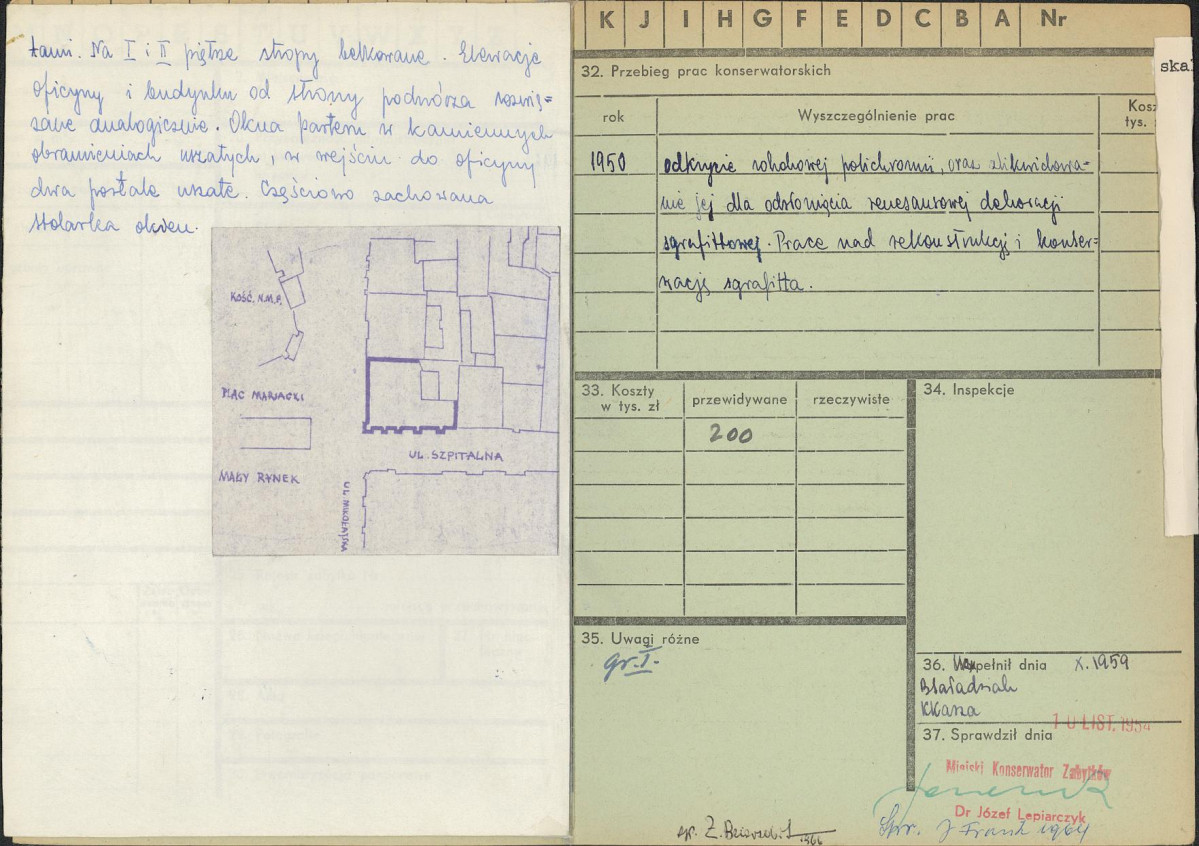 łami. Na I i II piętrze stropy belkowane. Elewacje
oficyny i budynku od strony podwórza rozwią=
zane analogicznie. Okna parteru w kamiennych
obramieniach uszatych, w wejściu do oficyny
dwa portale uszate. Częściowo zachowana
stolarka okien.
KOŚĆ. N.M.P.
PLAC MARIACKI
MAŁY RYNEK
UL. SZPITALNA
UL. MIKOŁAJSKA
K J I H G F E D C B A Nr
32. Przebieg prac konserwatorskich
rok
Wyszczególnienie prac
Kosz
tys.
skal
1950 odkrycie rokokowej polichromii, oraz zlikwidowa-
nie jej dla odsłonięcia renesansowej dekoracji
sgrafittowej. Prace nad rekonstrukcją i konser=
wacją sgrafitta.
33. Koszty
w tys. zł
przewidywane
rzeczywiste
200
34. Inspekcje
35. Uwagi różne
gr. I.
36. Wypełnił dnia X. 1959
KKasza
10 LIST. 1954
37. Sprawdził dnia
Miejski Konserwator Zabytków
Dr Józef Lepiarczyk
Spr. J Frank 1964